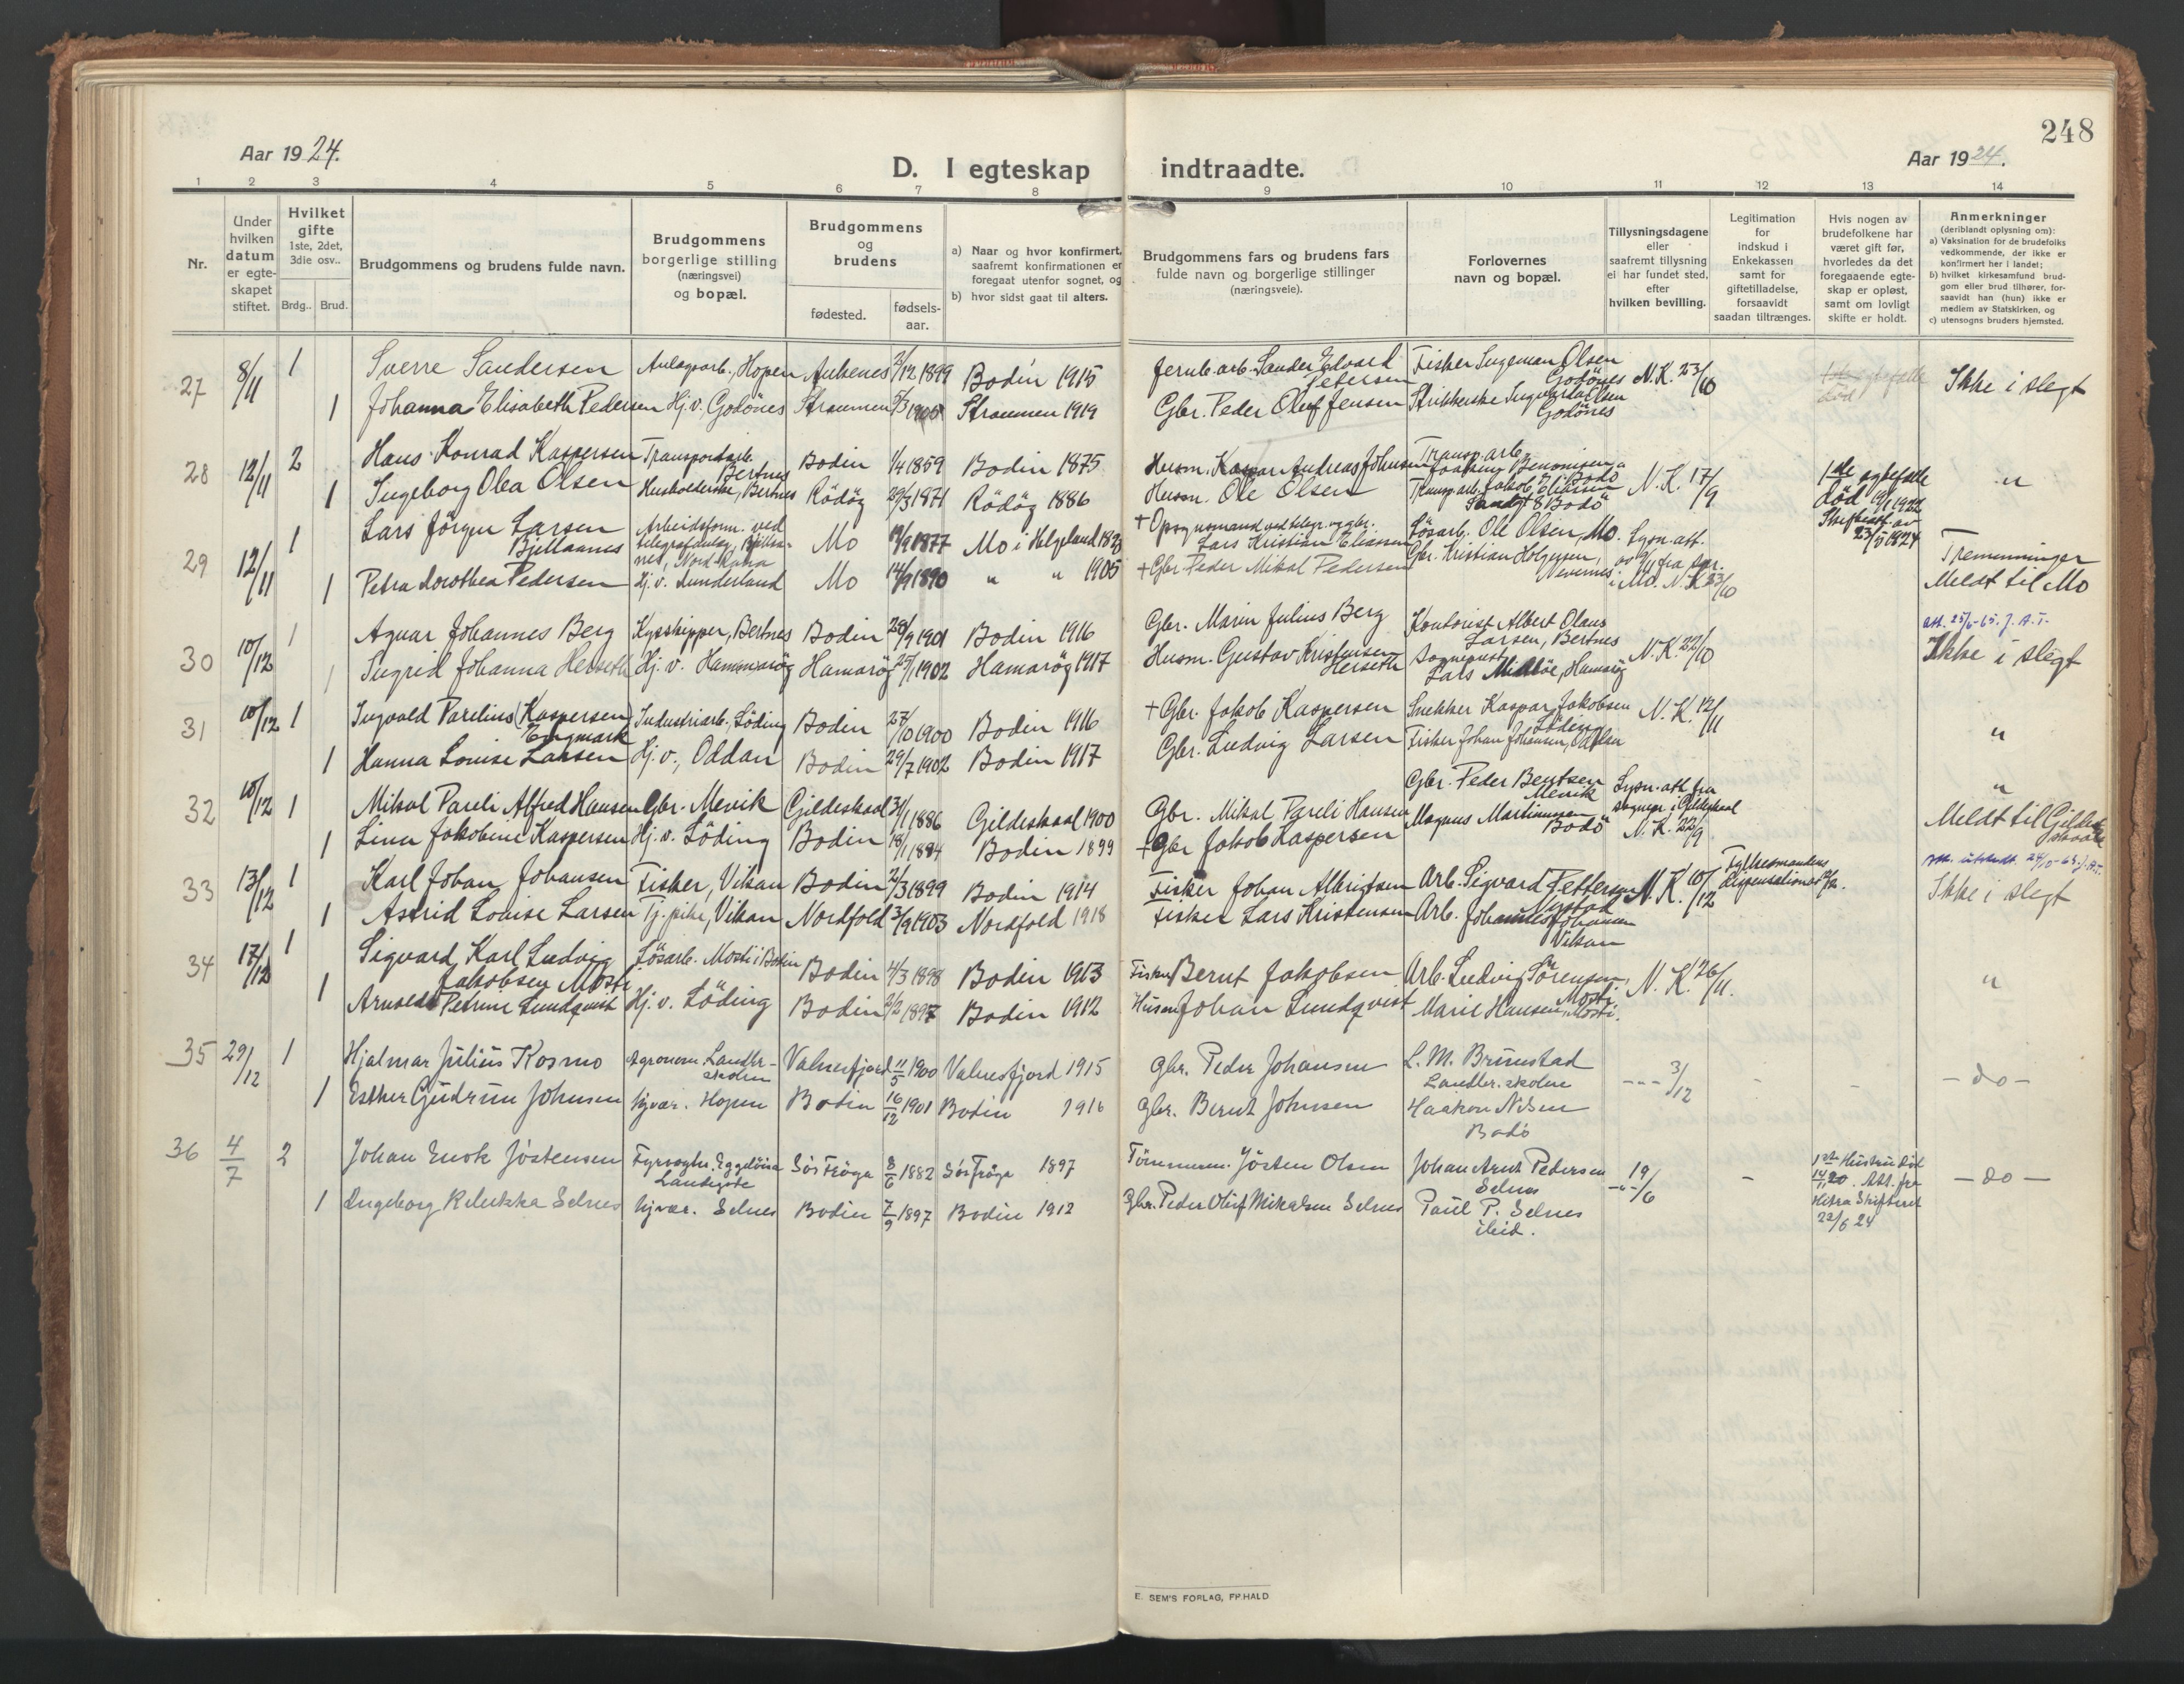 248
Aar 1924.
D. I egteskap indtraadte.
Aar 1924.
1 2 3 4 5 6 7 8 9 10 11 12 13 14
Nr.
Under hvilken datum er egte-skapet stiftet.
Hvilket gifte 1ste, 2det, 3die osv..
Brdg.. Brud.
Brudgommens og brudens fulde navn.
Brudgommens borgerlige stilling (næringsvei) og bopæl.
Brudgommens og brudens
fødested.
fødsels-aar.
a) Naar og hvor konfirmert, saafremt konfirmationen er foregaat utenfor sognet, og
b) hvor sidst gaat til alters.
Brudgommens fars og brudens fars fulde navn og borgerlige stillinger (næringsveie).
Forlovernes navn og bopæl.
Tillysningsdagene eller saafremt tillysning ei har fundet sted, efter hvilken bevilling.
Legitimation for indskud i Enkekassen samt for giftetilladelse, forsaavidt saadan tiltrænges.
Hvis nogen av brudefolkene har været gift før, hvorledes da det foregaaende egte-skap er opløst, samt om lovligt skifte er holdt.
Anmerkninger (deriblandt oplysning om):
a) Vaksination for de brudefolks vedkommende, der ikke er konfirmert her i landet;
b) hvilket kirkesamfund brud-gom eller brud tilhører, for-saavidt han (hun) ikke er medlem av Statskirken, og
c) utensogns bruders hjemsted.
27 8/11 1 Sverre Sandersen Anlægsarb., Hopen Ankenes 2/12 1899 Bodin 1915 Jernb. arb. Sander Edvard Petersen Fisker Ingeman Olsen Godönes N. K. 23/10 Ikke i slegt
1 Johanna Elisabeth Pedersen Hj. v. Godönes Strømmen 1905 Strømmen 1919 Gbr. Peder Oluf Jensen Strikkerske Olsen Godönes
28 12/11 2 Hans Konrad Kaspersen Transportarb. Bertnes Bodin 1/4 1859 Bodin 1875 Husm. Kaspar Andreas Johnsen Transp. arb. Joakim Benonisen Bodö N. K. 17/9 1ste egtefælle død 19/1 1922 Skifteatt. av 23/5 1924 "
1 Ingeborg Olea Olsen Husholderske, Bertnes Rödöy 29/3 1871 Rödöy 1886 Husm. Ole Olsen Transp. arb. Jakob Eliassen Sandgt 8 Bodö
29 12/11 1 Lars Jörgen Larsen Bjellaanes Arbeidsform. ved telegrafanlæg, Bjellaa-nes, Nord-Rana Mo 1877 Mo i Helgeland Opsynsmand ved telegr. og gbr. Lars Kristian Eliassen Lösarb. Ole Olsen, Mo. Lysn. att. Tremenninger
1 Petra Dorothea Pedersen Hj. v. Dunderland Mo 14/9 1890 " " 1905 + Gbr. Peder Mikal Pedersen Gbr. Kristian Holgersen, Nevernes i Mo. N. K. 23/10 Meldt til Mo
30 10/12 1 Agnar Johannes Berg Kysskipper, Bertnes Bodin 28/9 1901 Bodin 1916 Gbr. Marin Julius Berg Kontorist Albert Olaus Larsen, Bertnes N. K. 22/10 att. 25/6-65. J. A. T. Ikke i slegt
1 Sigrid Johanna Herseth Hj. v. Hammaröy Hamaröy 25/1 1902 Hamaröy 1917 Husm. Gustav Kristensen Herseth Sogneprest Lars Hamaröy
31 10/12 1 Ingvald Parelius (Kaspersen) Engmark Industriarb. Löding Bodin 27/10 1900 Bodin 1916 + Gbr. Jakob Kaspersen Snekker Kaspar Jakobsen Löding N. K. 12/11 "
1 Hanna Louise Larsen Hj. v., Oddan Bodin 29/7 1902 Bodin 1917 Gbr. Ludvig Larsen Fisker Johan Johansen, Oddan
32 10/12 1 Mikal Pareli Alfred Hansen Gbr. Mevik Gildeskaal 31/1 1886 Gildeskaal 1900 Gbr. Mikal Pareli Hansen Gbr. Peder Bentsen Mevik Lysn. att. fra sognepr. i Gildeskaal "
1 Lina Jakobine Kaspersen Hj. v. Löding Bodin 18/1 1884 Bodin 1899 + Gbr Jakob Kaspersen Magnus Martinussen Bodö N. K. 22/9 Meldt til Gildeskaal
33 13/12 1 Karl Johan Johansen Fisker, Vikan Bodin 2/3 1899 Bodin 1914 Fisker Johan Albrigtsen Arb. Sigvard Pettersen N. K. 10/12 Fylkesmandens dispensation Att. utstedt Ikke i slegt
1 Astrid Louise Larsen Tj. pike, Vikan Nordfold 3/9 1903 Nordfold 1918 Fisker Lars Kristensen Arb. Johannes Johansen Vikan
34 17/12 1 Sigvard Karl Ludvig Jakobsen Mosti Lösarb. Mosti i Bodin Bodin 4/3 1898 Bodin 1913 Fisker Bernt Jakobsen Arb. Ludvig Sörensen, Mosti N. K. 26/11. "
1 Petrine Lundqvist Hj. v. Löding Bodin 2/2 1897 Bodin 1912 Husm Johan Lundqvist Marie Hansen, Mosti.
35 29/12 1 Hjalmar Julius Kosmo Agronom. Landbr-skolen Valnesfjord 11/5 1900 Valnesfjord 1915 Gbr. Peder Johansen L. M. Brunstad Landbr. skolen -"- 3/12 - - - do -
1 Esther Gudrun Johnsen Hjvær. Hopen Bodin 16/12 1901 Bodin 1916 Gbr. Bernt Johnsen Haakon Nilsen Bodö
36 4/7 2 Johan Enok Jöstensen Fyrvogter. Eggelöisa Landegode Sör Fröya 8/6 1882 Sör Fröya 1897 Tömmerm. Jösten Olsen Johan Arnt Pedersen Selnes -"- 19/6 - 1ste Hustru död 14/11 20. Att. fra Hitra Skifteret 22/6 24 - do -
1 Ingeborg Rebekka Selnes Hjvær. Selnes Bodin 7/9 1897 Bodin 1912 Gbr. Peder Oluf Mikalsen Selnes Paul P. Selnes ibid.
E. SEM'S FORLAG, FR.HALD